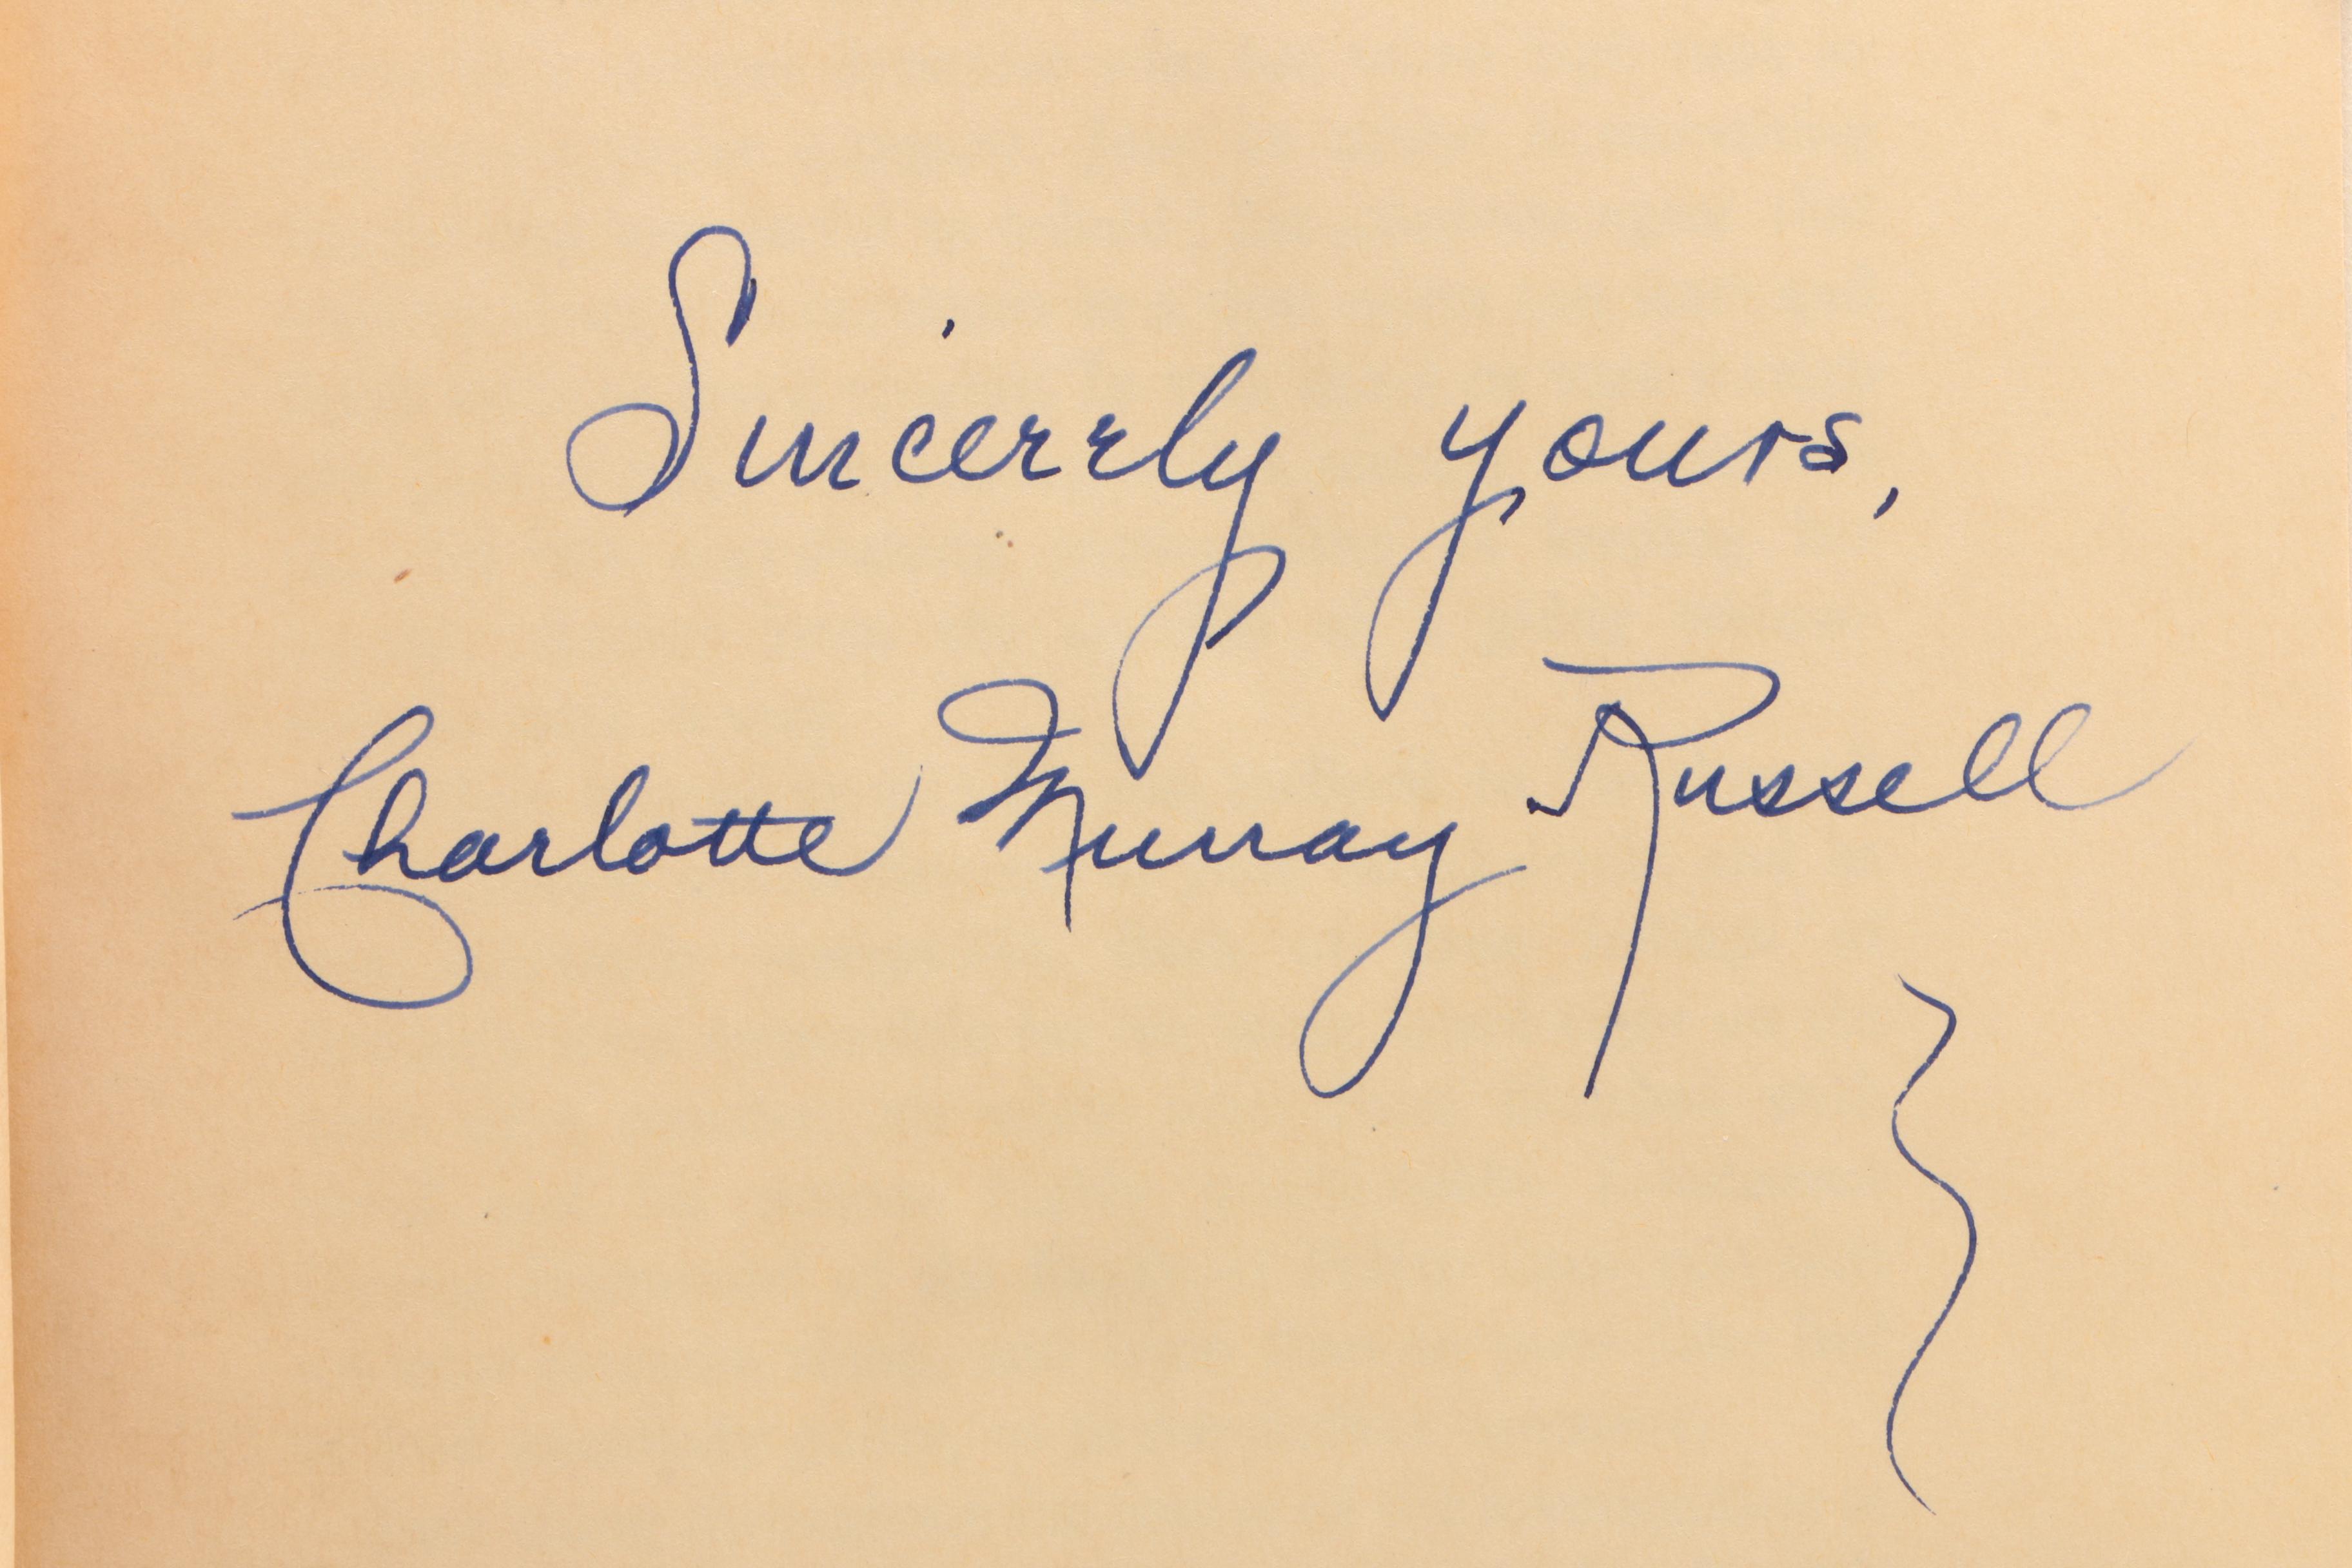 Sincerely yours,
Charlotte Murray Russell